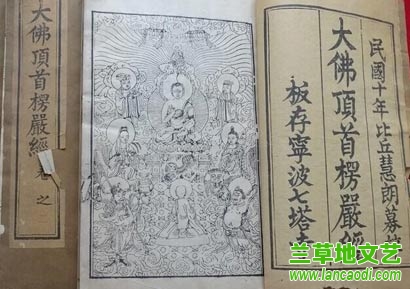 民國十年比丘慧朗募
大佛頂首楞嚴經
板存寧波七塔
大佛頂首楞嚴經卷之
兰草地文艺
www.lancaodi.com